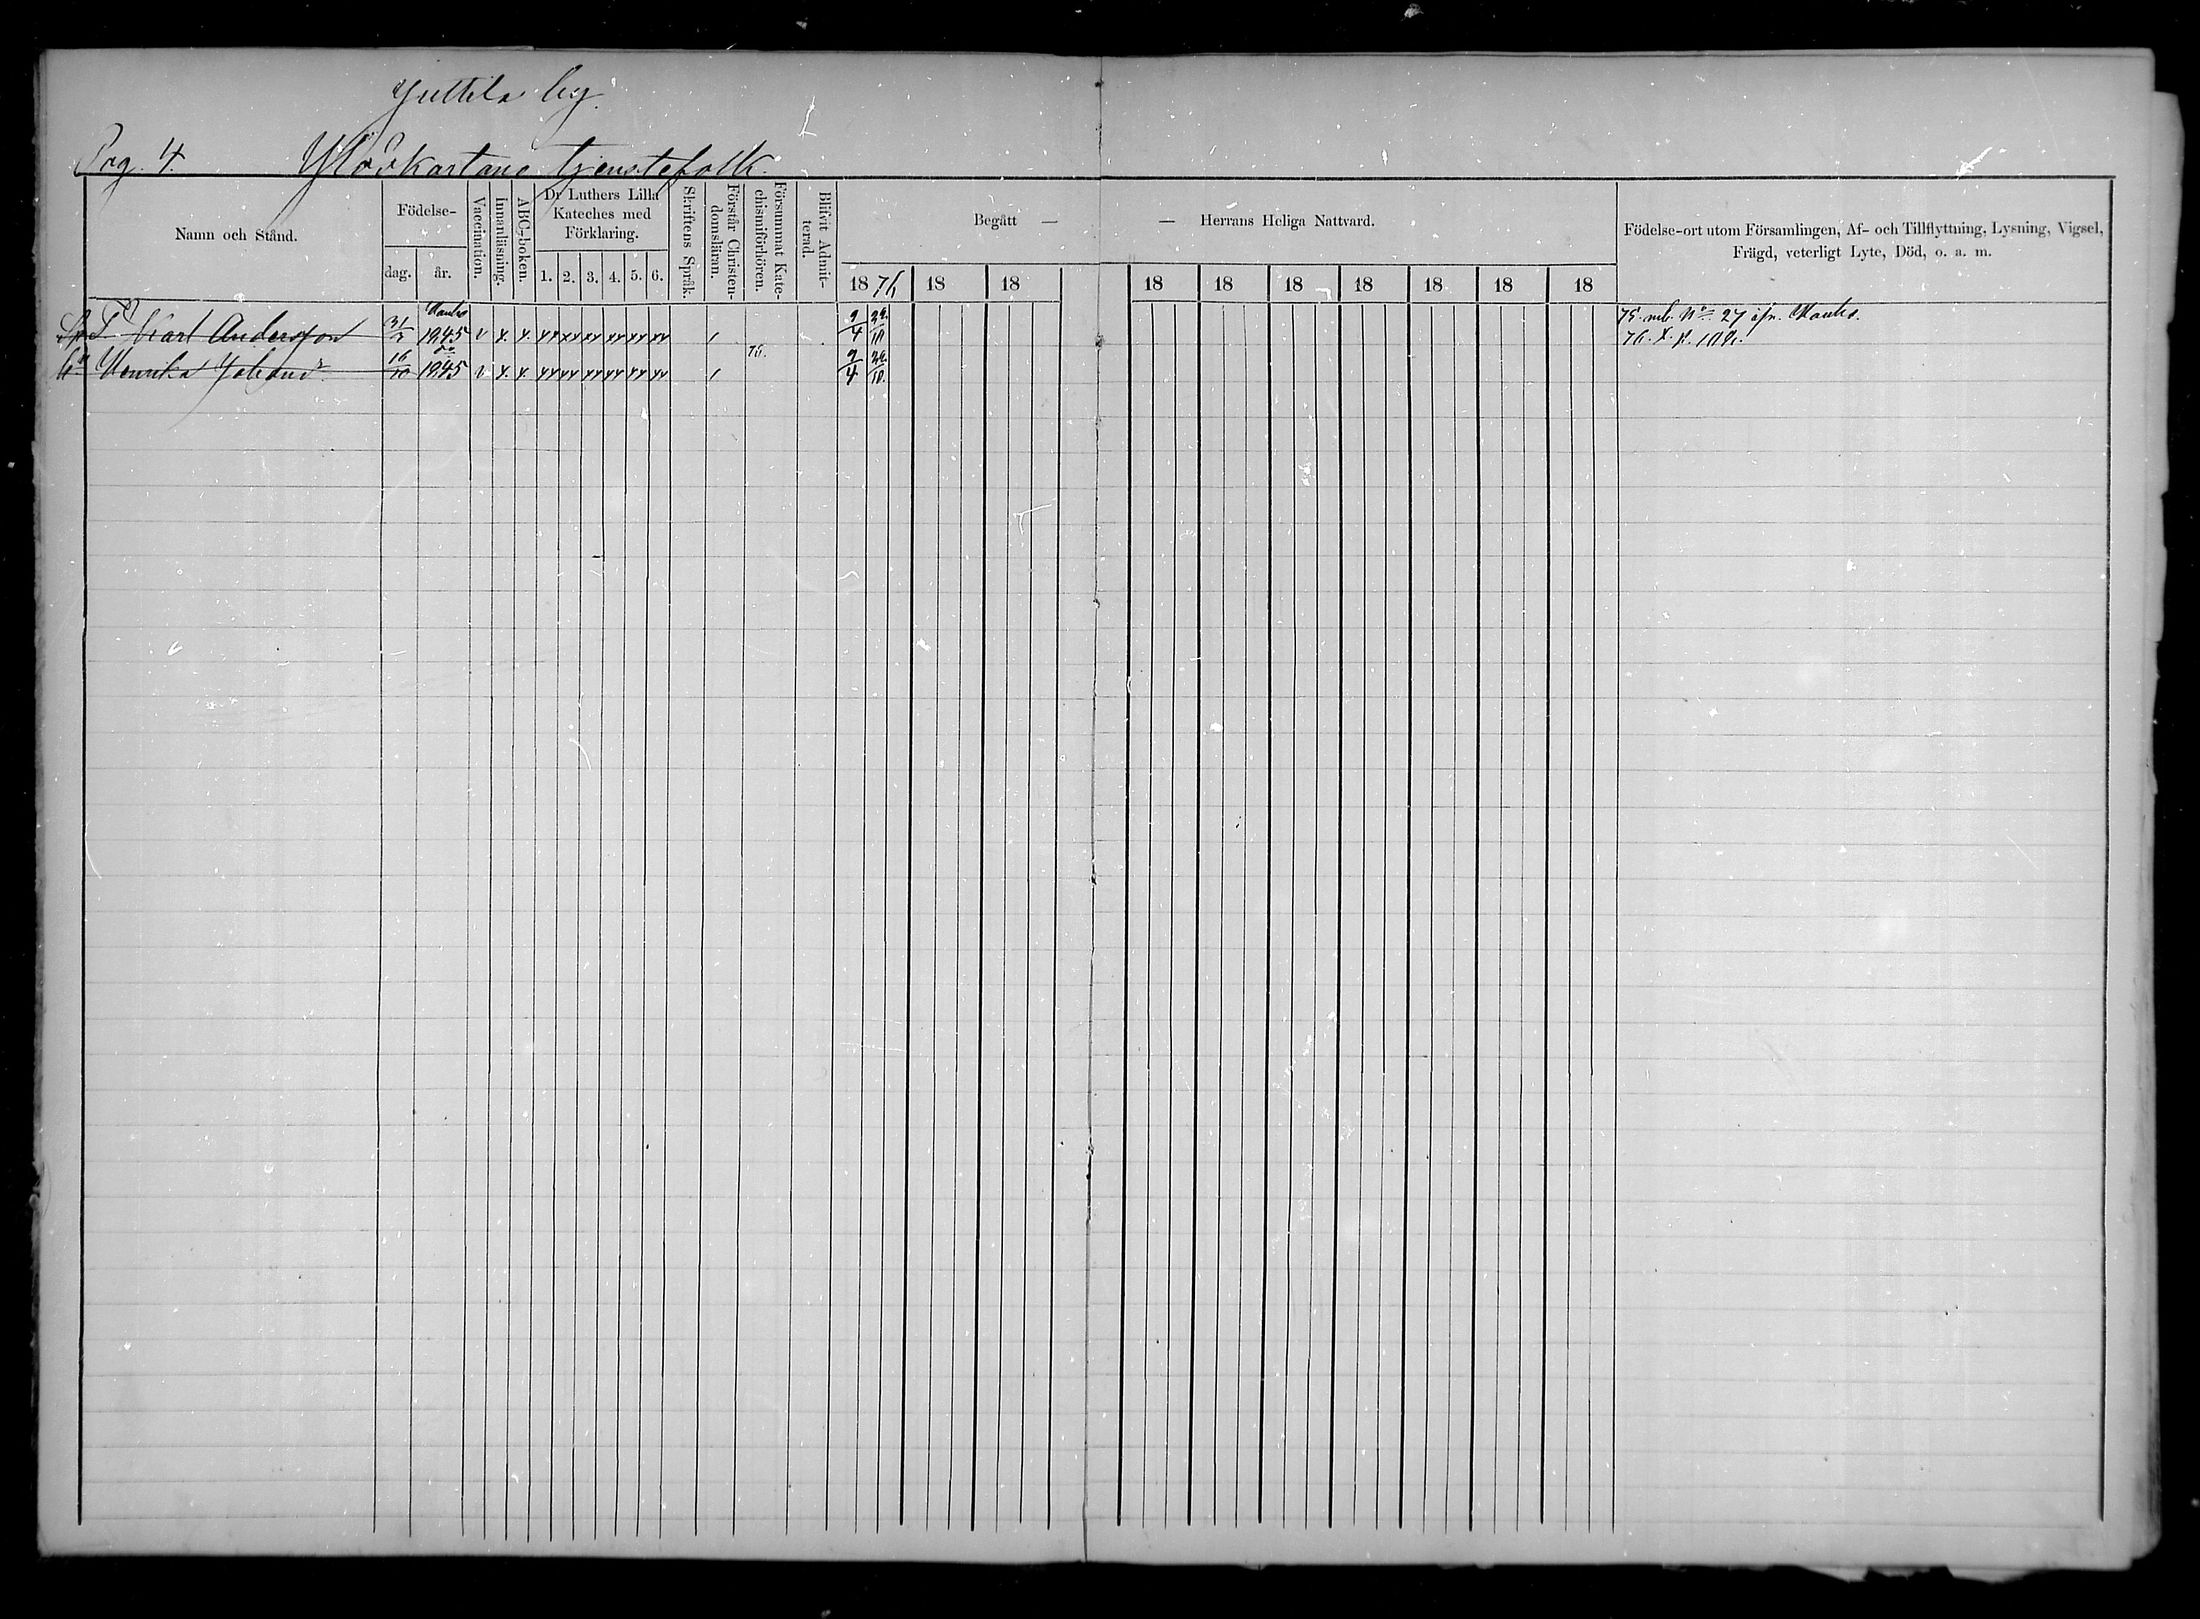 Juttila by.
Pag. 4. Ylöskartano tjenstefolk.
Namn och Stånd.
Födelse-
dag. år.
Vaccination.
Innanläsning.
ABC-boken.
Dr Luthers Lilla
Kateches med
Förklaring.
1. 2. 3. 4. 5. 6.
Skriftens Språk.
Förstår Christen-
domsläran.
Försummat Kate-
chismiförhören.
Blifvit Admit-
terad.
Begått — — Herrans Heliga Nattvard.
1876 18 18 18 18 18 18 18 18 18
Födelse-ort utom Församlingen, Af- och Tillflyttning, Lysning, Vigsel,
Frägd, veterligt Lyte, Död, o. a. m.
Karl Andersson 1845 v x. x. xx xx xx xx xx xx / 9/4 29/10 75. mb. No 27 ifr.
76.
Henrika Johansdr 16/10 do 1845 v x. x. xx xx xx xx xx xx / 76. 9/4 29/10.